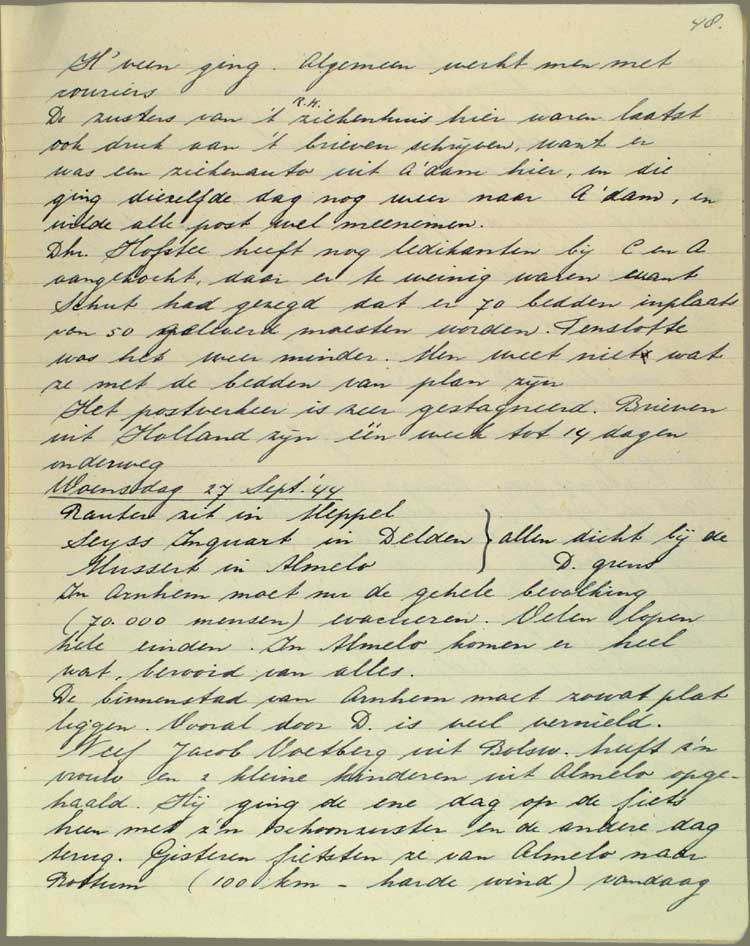 48.
H'veen ging. Algemeen werkt men met
couriers
De zusters van 't R.K. ziekenhuis hier waren laatst
ook druk aan 't brieven schrijven, want er
was een ziekenauto uit A'dam hier, en die
ging diezelfde dag nog weer naar A'dam, en
wilde alle post wel meenemen.
Dhr. Hofstee heeft nog ledikanten bij C en A
aangekocht, daar er te weinig waren want
Schut had gezegd dat er 70 bedden inplaats
van 50 geleverd moesten worden. Tenslotte
was het weer minder. Men weet niet wat
ze met de bedden van plan zijn
Het postverkeer is zeer gestagneerd. Brieven
uit Holland zijn één week tot 14 dagen
onderweg
Woensdag 27 Sept. '44
Rauter zit in Meppel
Seyss Inquart in Delden } allen dicht bij de
Mussert in Almelo D. grens
In Arnhem moet nu de gehele bevolking
(70.000 mensen) evacueren. Velen lopen
hele einden. In Almelo komen er heel
wat, beroofd van alles.
De binnenstad van Arnhem moet zowat plat
liggen. Vooral door D. is veel vernield.
Neef Jacob Voetberg uit Bolsw. heeft z'n
vrouw en 2 kleine kinderen uit Almelo opge-
haald. Hij ging de ene dag op de fiets
heen met z'n schoonzuster en de andere dag
terug. Gisteren fietsten ze van Almelo naar
Rottum (100 km - harde wind) vandaag